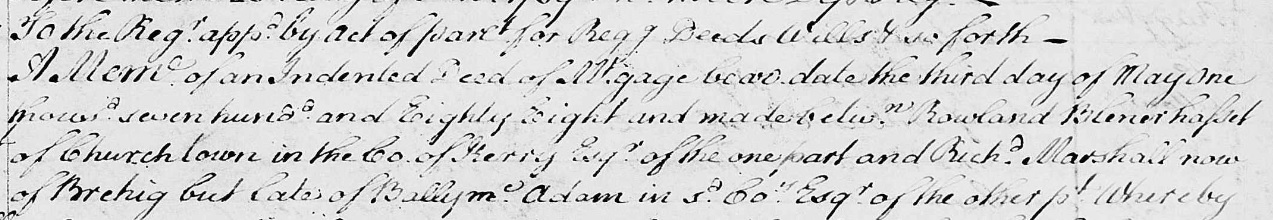 To the Regr. appd. by Act of parlt. for Regg Deeds Wills & so forth –
A Memd. of an Indented Deed of Mtgage bears date the third day of May One
thousd. seven hundd. and Eighty Eight and made betwn. Rowland Blenerhasset
of Churchtown in the Co. of Kerry Esqr. of the one part and Richd. Marshall now
of Brehig but late of Ballymc. Adam in sd. Coy. Esqr. of the other pt. Whereby